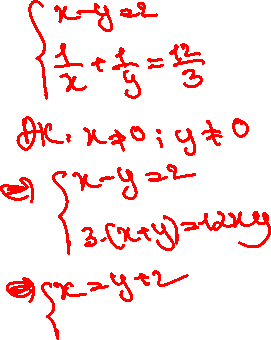 { x - y = 2
1/x + 1/y = 12/3
ĐK: x ≠ 0 ; y ≠ 0
⇔ { x - y = 2
3.(x+y) = 12xy
⇔ { x = y + 2